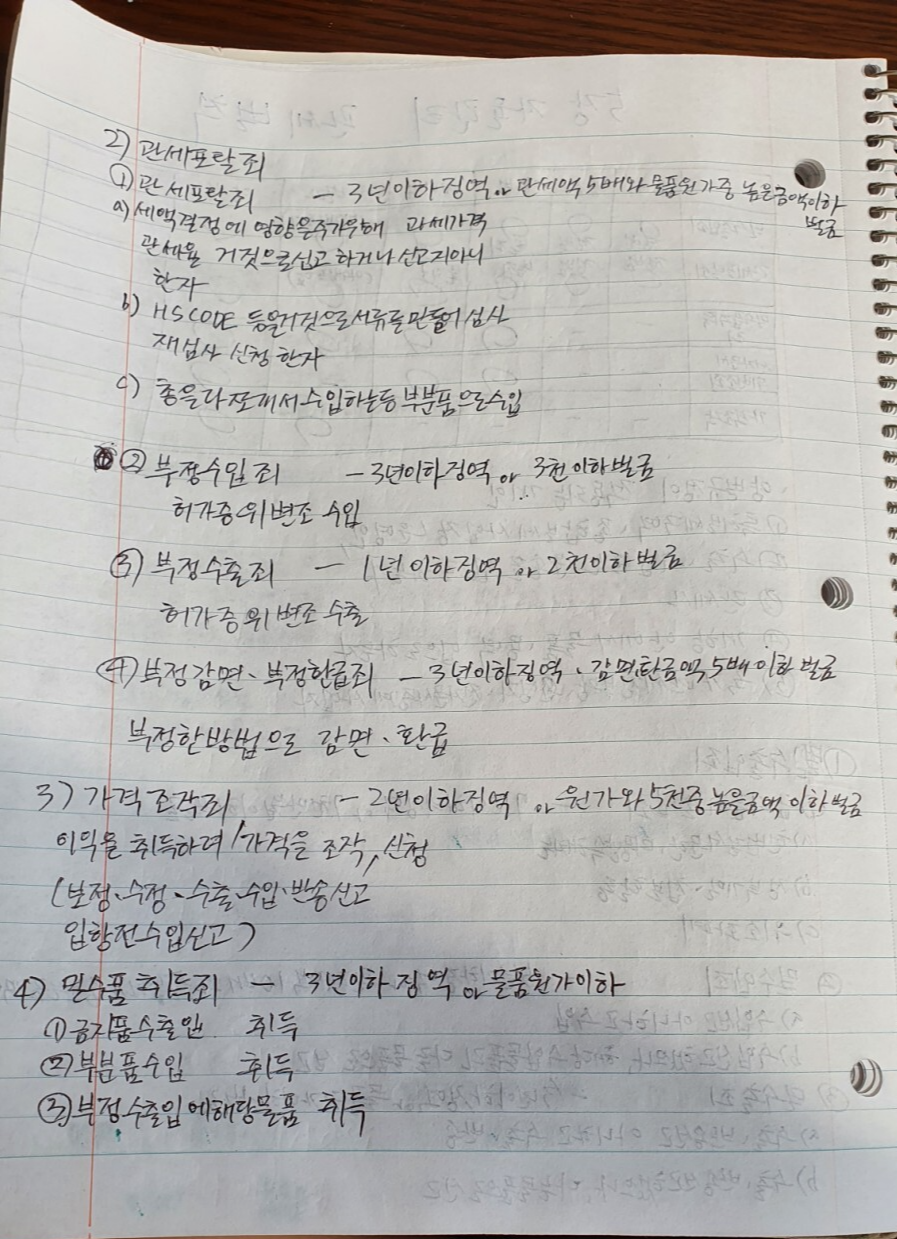 2) 관세포탈죄
① 관세포탈죄 - 3년이하징역 or 관세액 5배와 물품원가중 높은금액이하 벌금
a) 세액결정에 영향을주기위해 과세가격
관세율 거짓으로신고하거나 신고지아니
한자
b) HSCODE 등을거짓으로서류를만들어 심사
재심사 신청한자
c) 수입하는등 부분품으로수입
② 부정수입죄 - 3년이하징역 or 3천이하벌금
허가증 위변조 수입
③ 부정수출죄 - 1년이하징역 or 2천이하벌금
허가증위변조 수출
④ 부정감면·부정환급죄 - 3년이하징역, 감면탄금액 5배이하 벌금
부정한방법으로 감면·환급
3) 가격조작죄 - 2년이하징역 or 원가와 5천중높은금액 이하벌금
이익을 취득하려 가격을 조작, 신청
(보정·수정·수출·수입·반송신고
입항전수입신고)
4) 밀수품 취득죄 - 3년이하 징역 or 물품원가이하
① 금지품수출입 취득
② 부분품수입 취득
③ 부정수출입에해당물품 취득